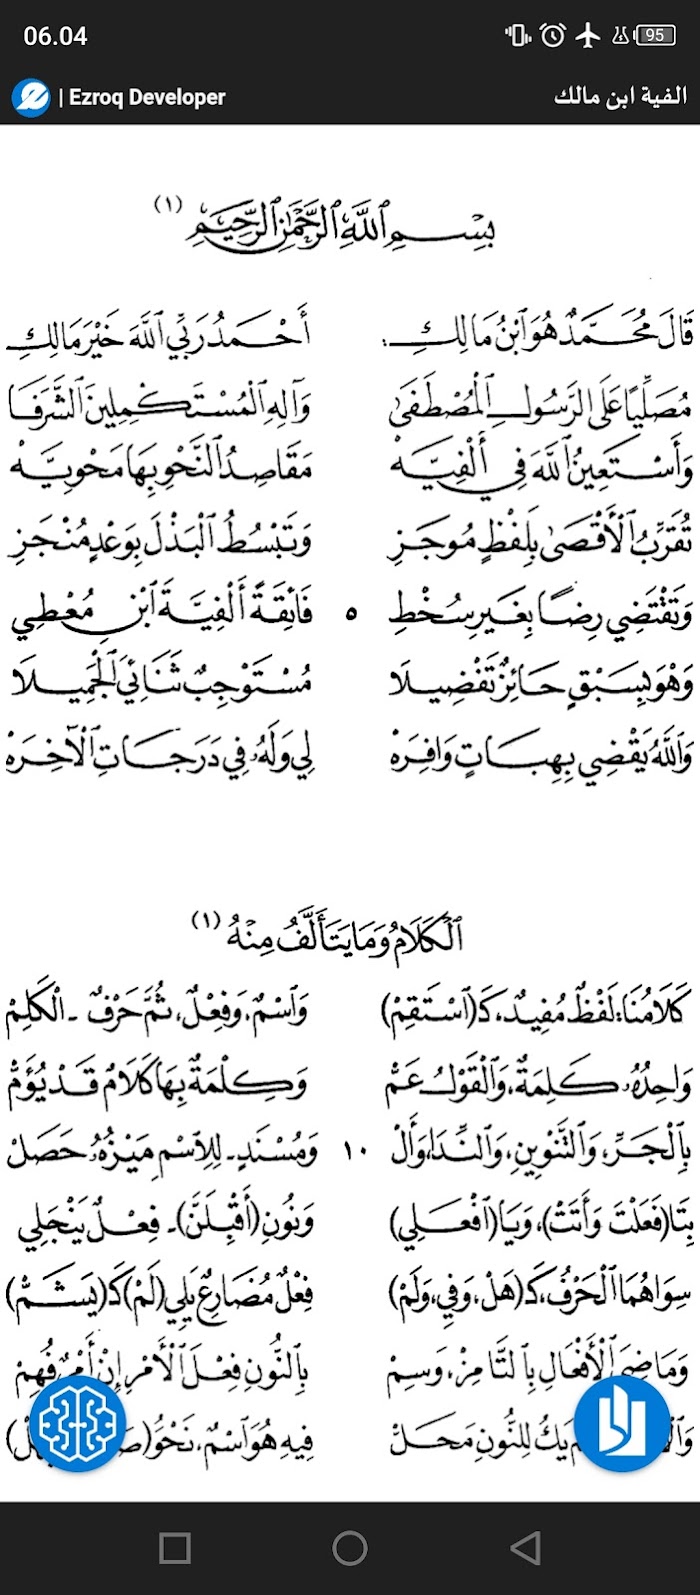 06.04
95
| Ezroq Developer الفية ابن مالك
بِسْمِ ٱللَّهِ ٱلرَّحْمَٰنِ ٱلرَّحِيمِ (١)
قَالَ مُحَمَّدٌ هُوَ ٱبْنُ مَالِكِ: أَحْمَدُ رَبِّي ٱللَّهَ خَيْرَ مَالِكِ
مُصَلِّيًا عَلَى ٱلرَّسُولِ ٱلْمُصْطَفَىٰ وَآلِهِ ٱلْمُسْتَكْمِلِينَ ٱلشَّرَفَا
وَأَسْتَعِينُ ٱللَّهَ فِي أَلْفِيَّهْ مَقَاصِدُ ٱلنَّحْوِ بِهَا مَحْوِيَّهْ
تُقَرِّبُ ٱلْأَقْصَىٰ بِلَفْظٍ مُوجَزِ وَتَبْسُطُ ٱلْبَذْلَ بِوَعْدٍ مُنْجَزِ
وَتَقْتَضِي رِضًا بِغَيْرِ سُخْطِ ٥ فَائِقَةً أَلْفِيَّةَ ٱبْنِ مُعْطِي
وَهْوَ بِسَبْقٍ حَائِزٌ تَفْضِيلَا مُسْتَوْجِبٌ ثَنَائِيَ ٱلْجَمِيلَا
وَٱللَّهُ يَقْضِي بِهِبَاتٍ وَافِرَهْ لِي وَلَهُ فِي دَرَجَاتِ ٱلْآخِرَهْ
ٱلْكَلَامُ وَمَا يَتَأَلَّفُ مِنْهُ (١)
كَلَامُنَا: لَفْظٌ مُفِيدٌ، كَـ(ٱسْتَقِمْ) وَٱسْمٌ، وَفِعْلٌ، ثُمَّ حَرْفٌ - ٱلْكَلِمْ
وَاحِدُهُ: كَلِمَةٌ، وَٱلْقَوْلُ عَمّْ وَكِلْمَةٌ بِهَا كَلَامٌ قَدْ يُؤَمّْ
بِٱلْجَرِّ، وَٱلتَّنْوِينِ، وَٱلنِّدَا، وَأَلْ ١٠ وَمُسْنَدٍ - لِلِٱسْمِ مَيْزُهُ حَصَلْ
بِتَا (فَعَلْتَ وَأَتَتْ)، وَيَا (ٱفْعَلِي) وَنُونِ (أَقْبِلَنَّ) - فِعْلٌ يَنْجَلِي
سِوَاهُمَا ٱلْحَرْفُ، كَـ(هَلْ، وَفِي، وَلَمْ) فِعْلٌ مُضَارِعٌ يَلِي (لَمْ) كَـ(يَشَمّْ)
وَمَاضِيَ ٱلْأَفْعَالِ بِٱلتَّا مِزْ، وَسِمْ بِٱلنُّونِ فِعْلَ ٱلْأَمْرِ إِنْ أَمْرٌ فُهِمْ
يَكُ لِلنُّونِ مَحَلّْ فِيهِ هُوَ ٱسْمٌ، نَحْوُ